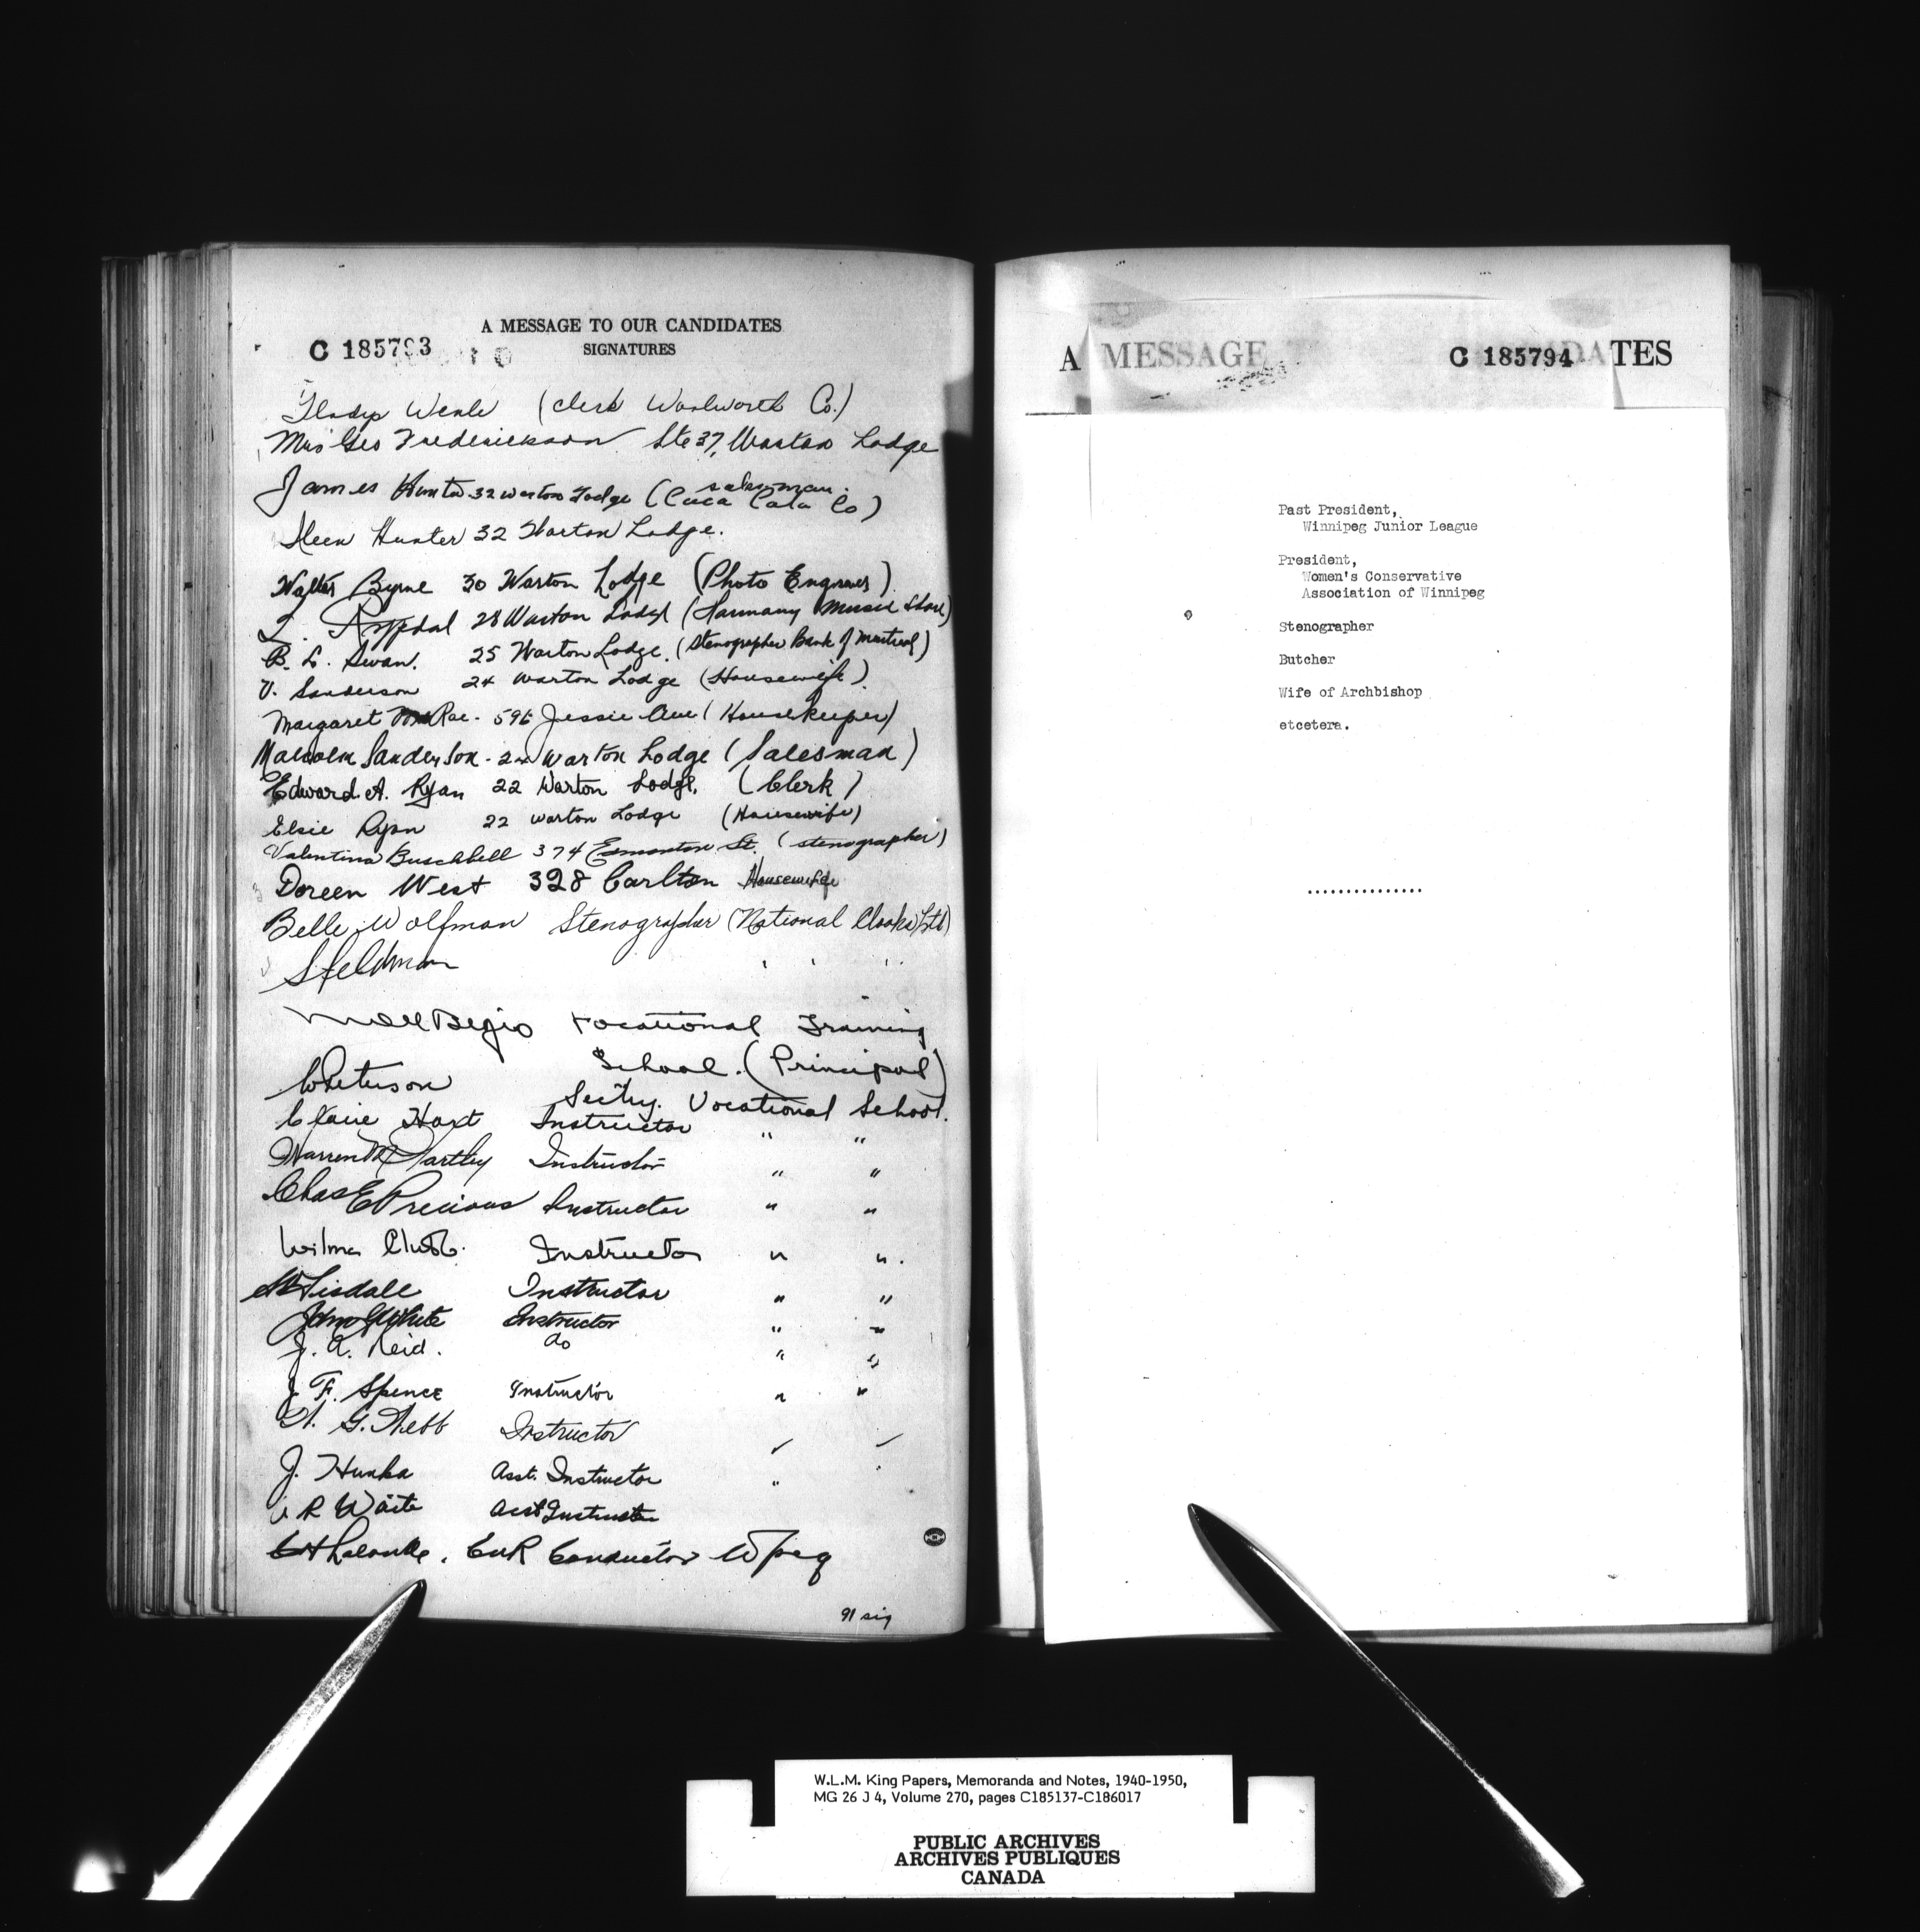 A MESSAGE TO OUR CANDIDATES
C 185793
SIGNATURES
Gladys (Clerk Woolworth Co.)
Mrs Geo Frederickson Ste 37, Warton Lodge
James Hunter 32 Warton Lodge (salesman
Coca Cola Co)
Hunter 32 Warton Lodge.
Walter Byrne 30 Warton Lodge (Photo Engraver)
28 Warton Lodge (Harmony Music Store)
B. L. Swan. 25 Warton Lodge. (Stenographer Bank of Montreal)
V. Sanderson 24 Warton Lodge (Housewife)
Margaret McRae - 596 Jessie Ave (Housekeeper)
Malcolm Sanderson - 24 Warton Lodge (Salesman)
Edward A. Ryan 22 Warton Lodge. (Clerk)
Elsie Ryan 22 Warton Lodge (Housewife)
Valentina Buschbell 374 Edmonton St. (stenographer)
Doreen West 328 Carlton Housewife
Belle Wolfman Stenographer (National Cloaks Ltd)
S Feldman " " "
Vocational Training
School. (Principal)
Vocational School.
Claire Hart Instructor " "
Warren M Hartley Instructor " "
Chas E Precious Instructor " "
Wilma Chubb. Instructor " ".
Tisdale Instructor " "
John G White Instructor " "
J. A. Reid. do " "
J F. Spence Instructor " "
G. Webb Instructor
J. Hunka Asst. Instructor "
R Waite Asst Instructor
Lalonde. CNR Conductor Wpeg
91 sig
A MESSAGE C 185794 DATES
Past President,
Winnipeg Junior League
President,
Women's Conservative
Association of Winnipeg
Stenographer
Butcher
Wife of Archbishop
etcetera.
...............
W.L.M. King Papers, Memoranda and Notes, 1940-1950,
MG 26 J 4, Volume 270, pages C185137-C186017
PUBLIC ARCHIVES
ARCHIVES PUBLIQUES
CANADA